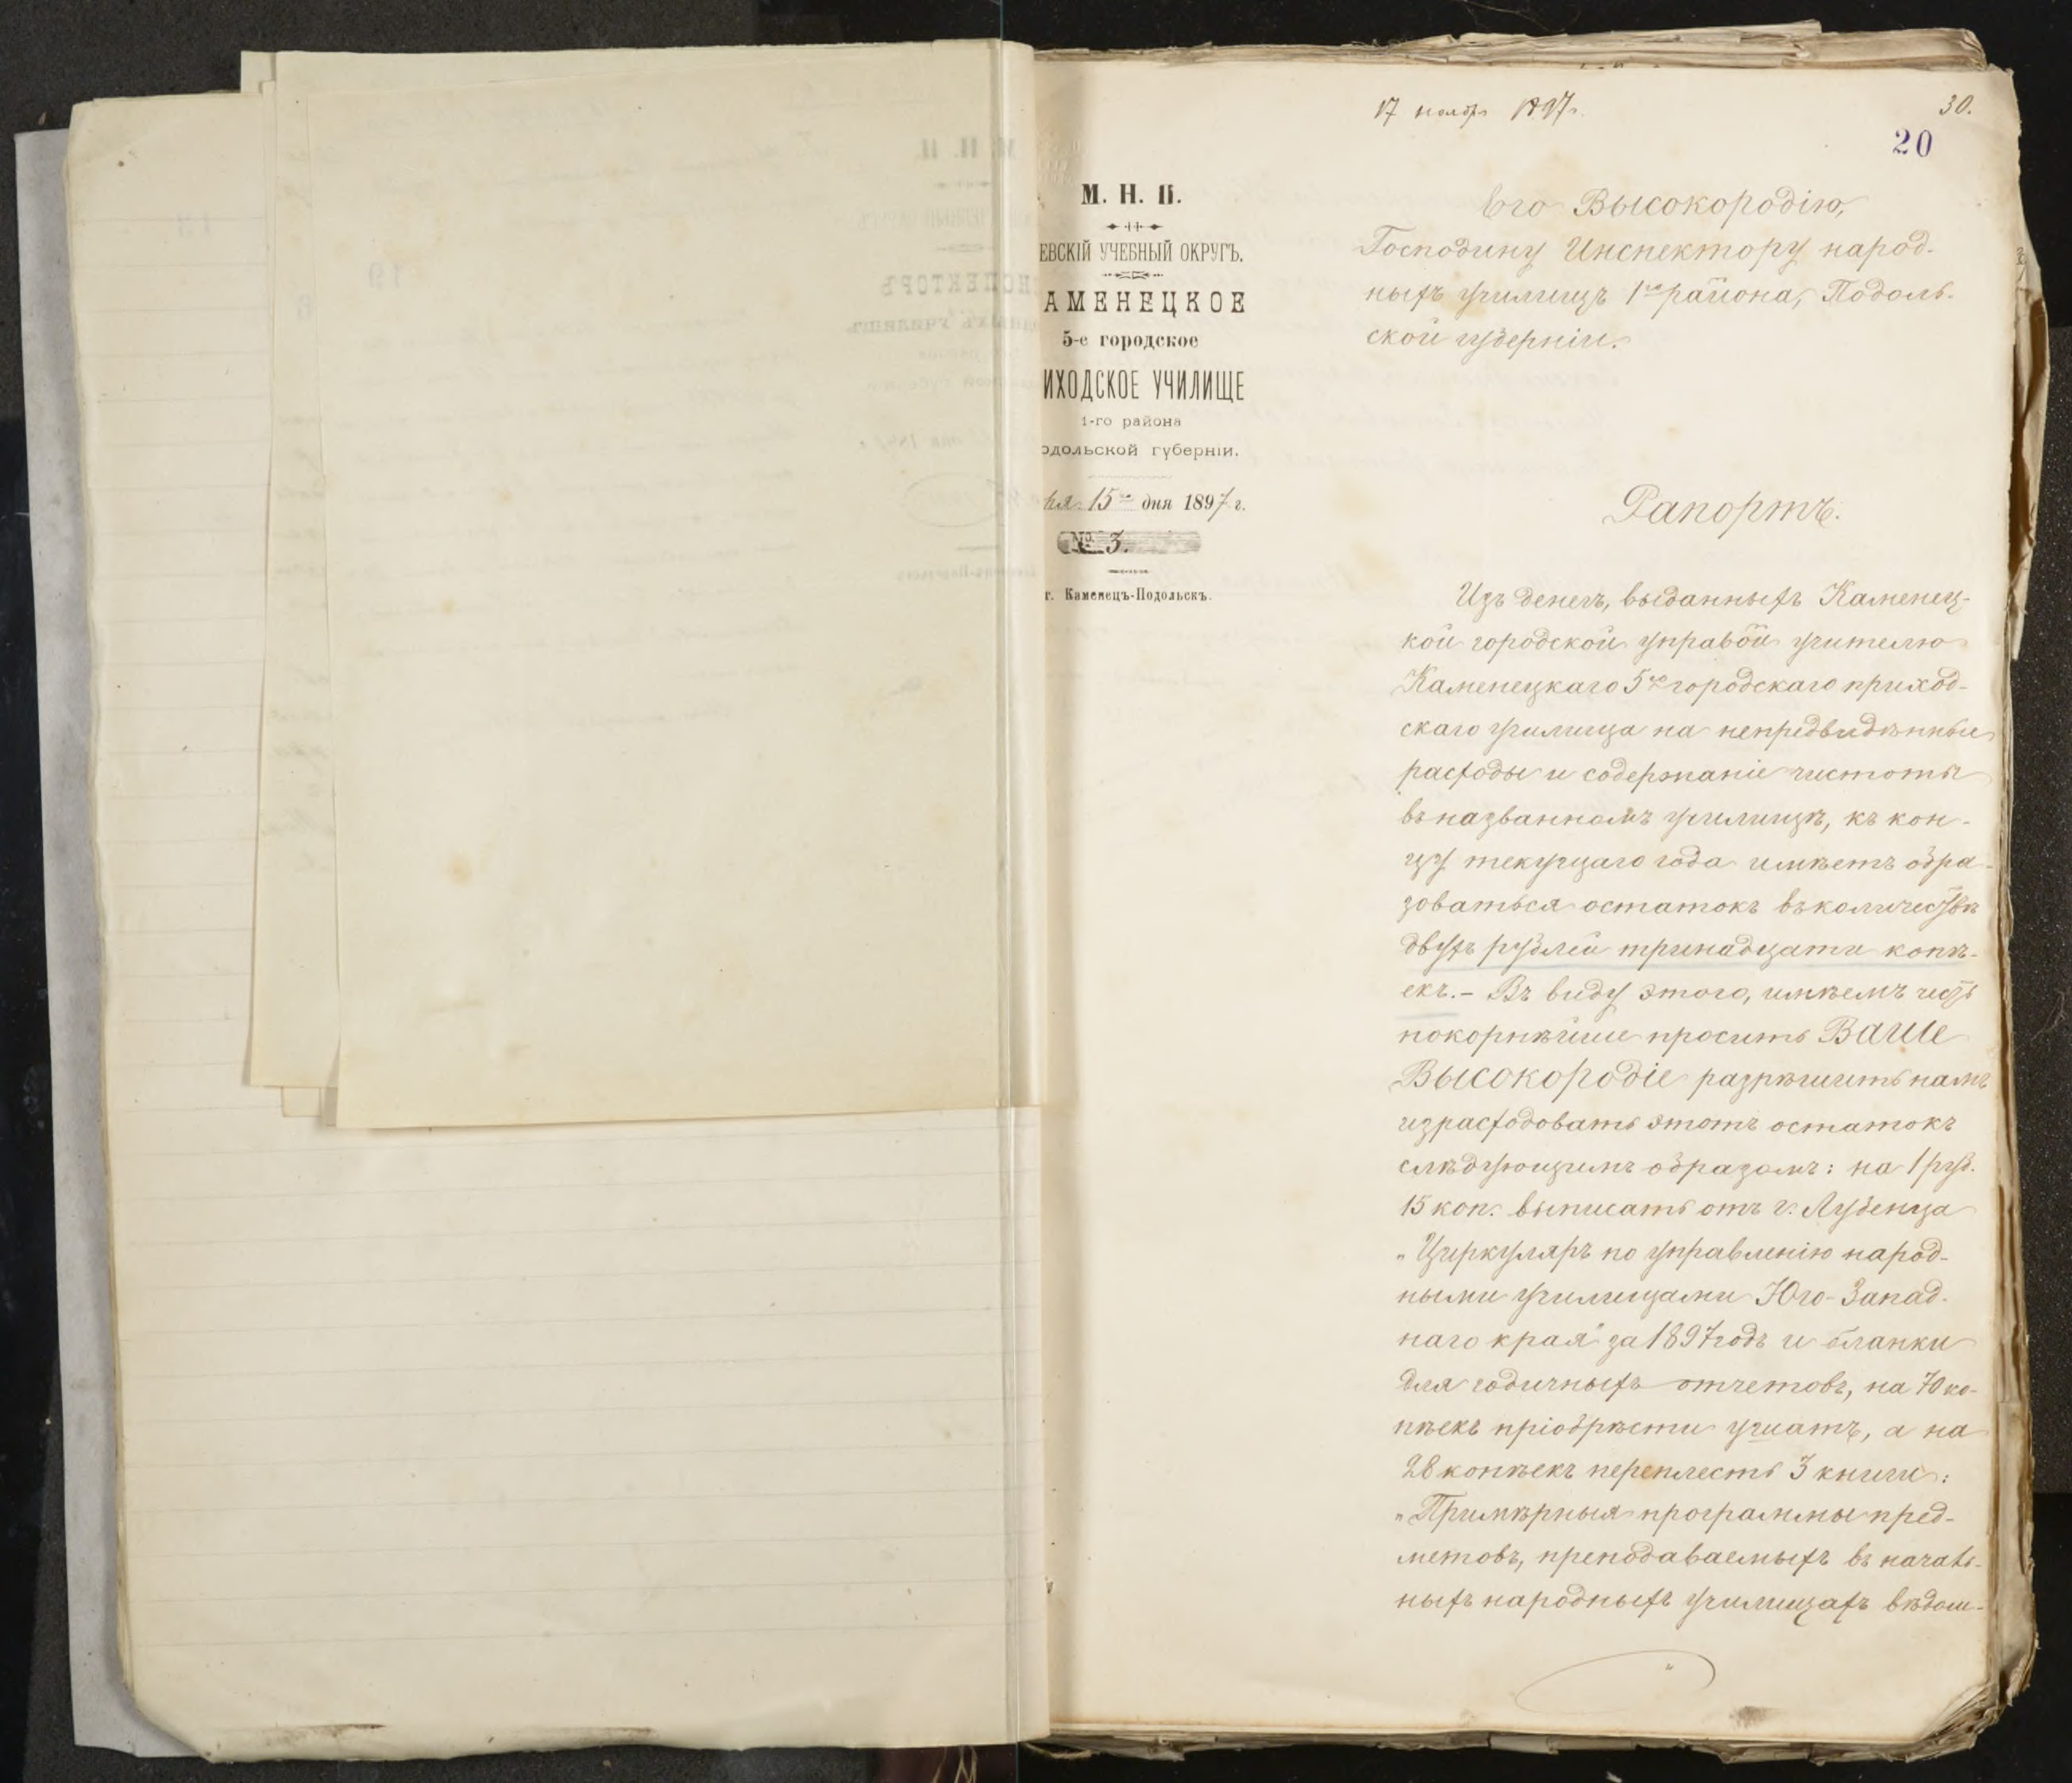 17 ноября 1897 г.
30.
20
М. Н. П.
ЕВСКІЙ УЧЕБНЫЙ ОКРУГЪ.
АМЕНЕЦКОЕ
5-е городское
ИХОДСКОЕ УЧИЛИЩЕ
1-го района
одольской губерніи.
бря 15го дня 1897 г.
№ 3.
г. Каменецъ-Подольскъ.
Его Высокородію,
Господину Инспектору народ-
ныхъ училищъ 1го района, Подоль-
ской губерніи.
Рапортъ.
Изъ денегъ, выданныхъ Каменец-
кой городской управой учителю
Каменецкаго 5го городскаго приход-
скаго училища на непредвидѣнные
расходы и содержаніе чистоты
въ названномъ училищѣ, къ кон-
цу текущаго года имѣетъ обра-
зоваться остатокъ въ количествѣ
двухъ рублей тринадцати копѣ-
екъ.- Въ виду этого, имѣемъ честь
покорнѣйше просить ВАШЕ
ВЫСОКОРОДІЕ разрѣшить намъ
израсходовать этотъ остатокъ
слѣдующимъ образомъ: на 1 руб.
15 коп. выписать отъ г. Лубенца
„Циркуляръ по управленію народ-
ными училищами Юго-Запад-
наго края" за 1897 годъ и бланки
для годичныхъ отчетовъ, на 70 ко-
пѣекъ пріобрѣсти ушатъ, а на
28 копѣекъ переплесть 3 книги:
„Примѣрныя программы пред-
метовъ, преподаваемыхъ въ началь-
ныхъ народныхъ училищахъ вѣдом-